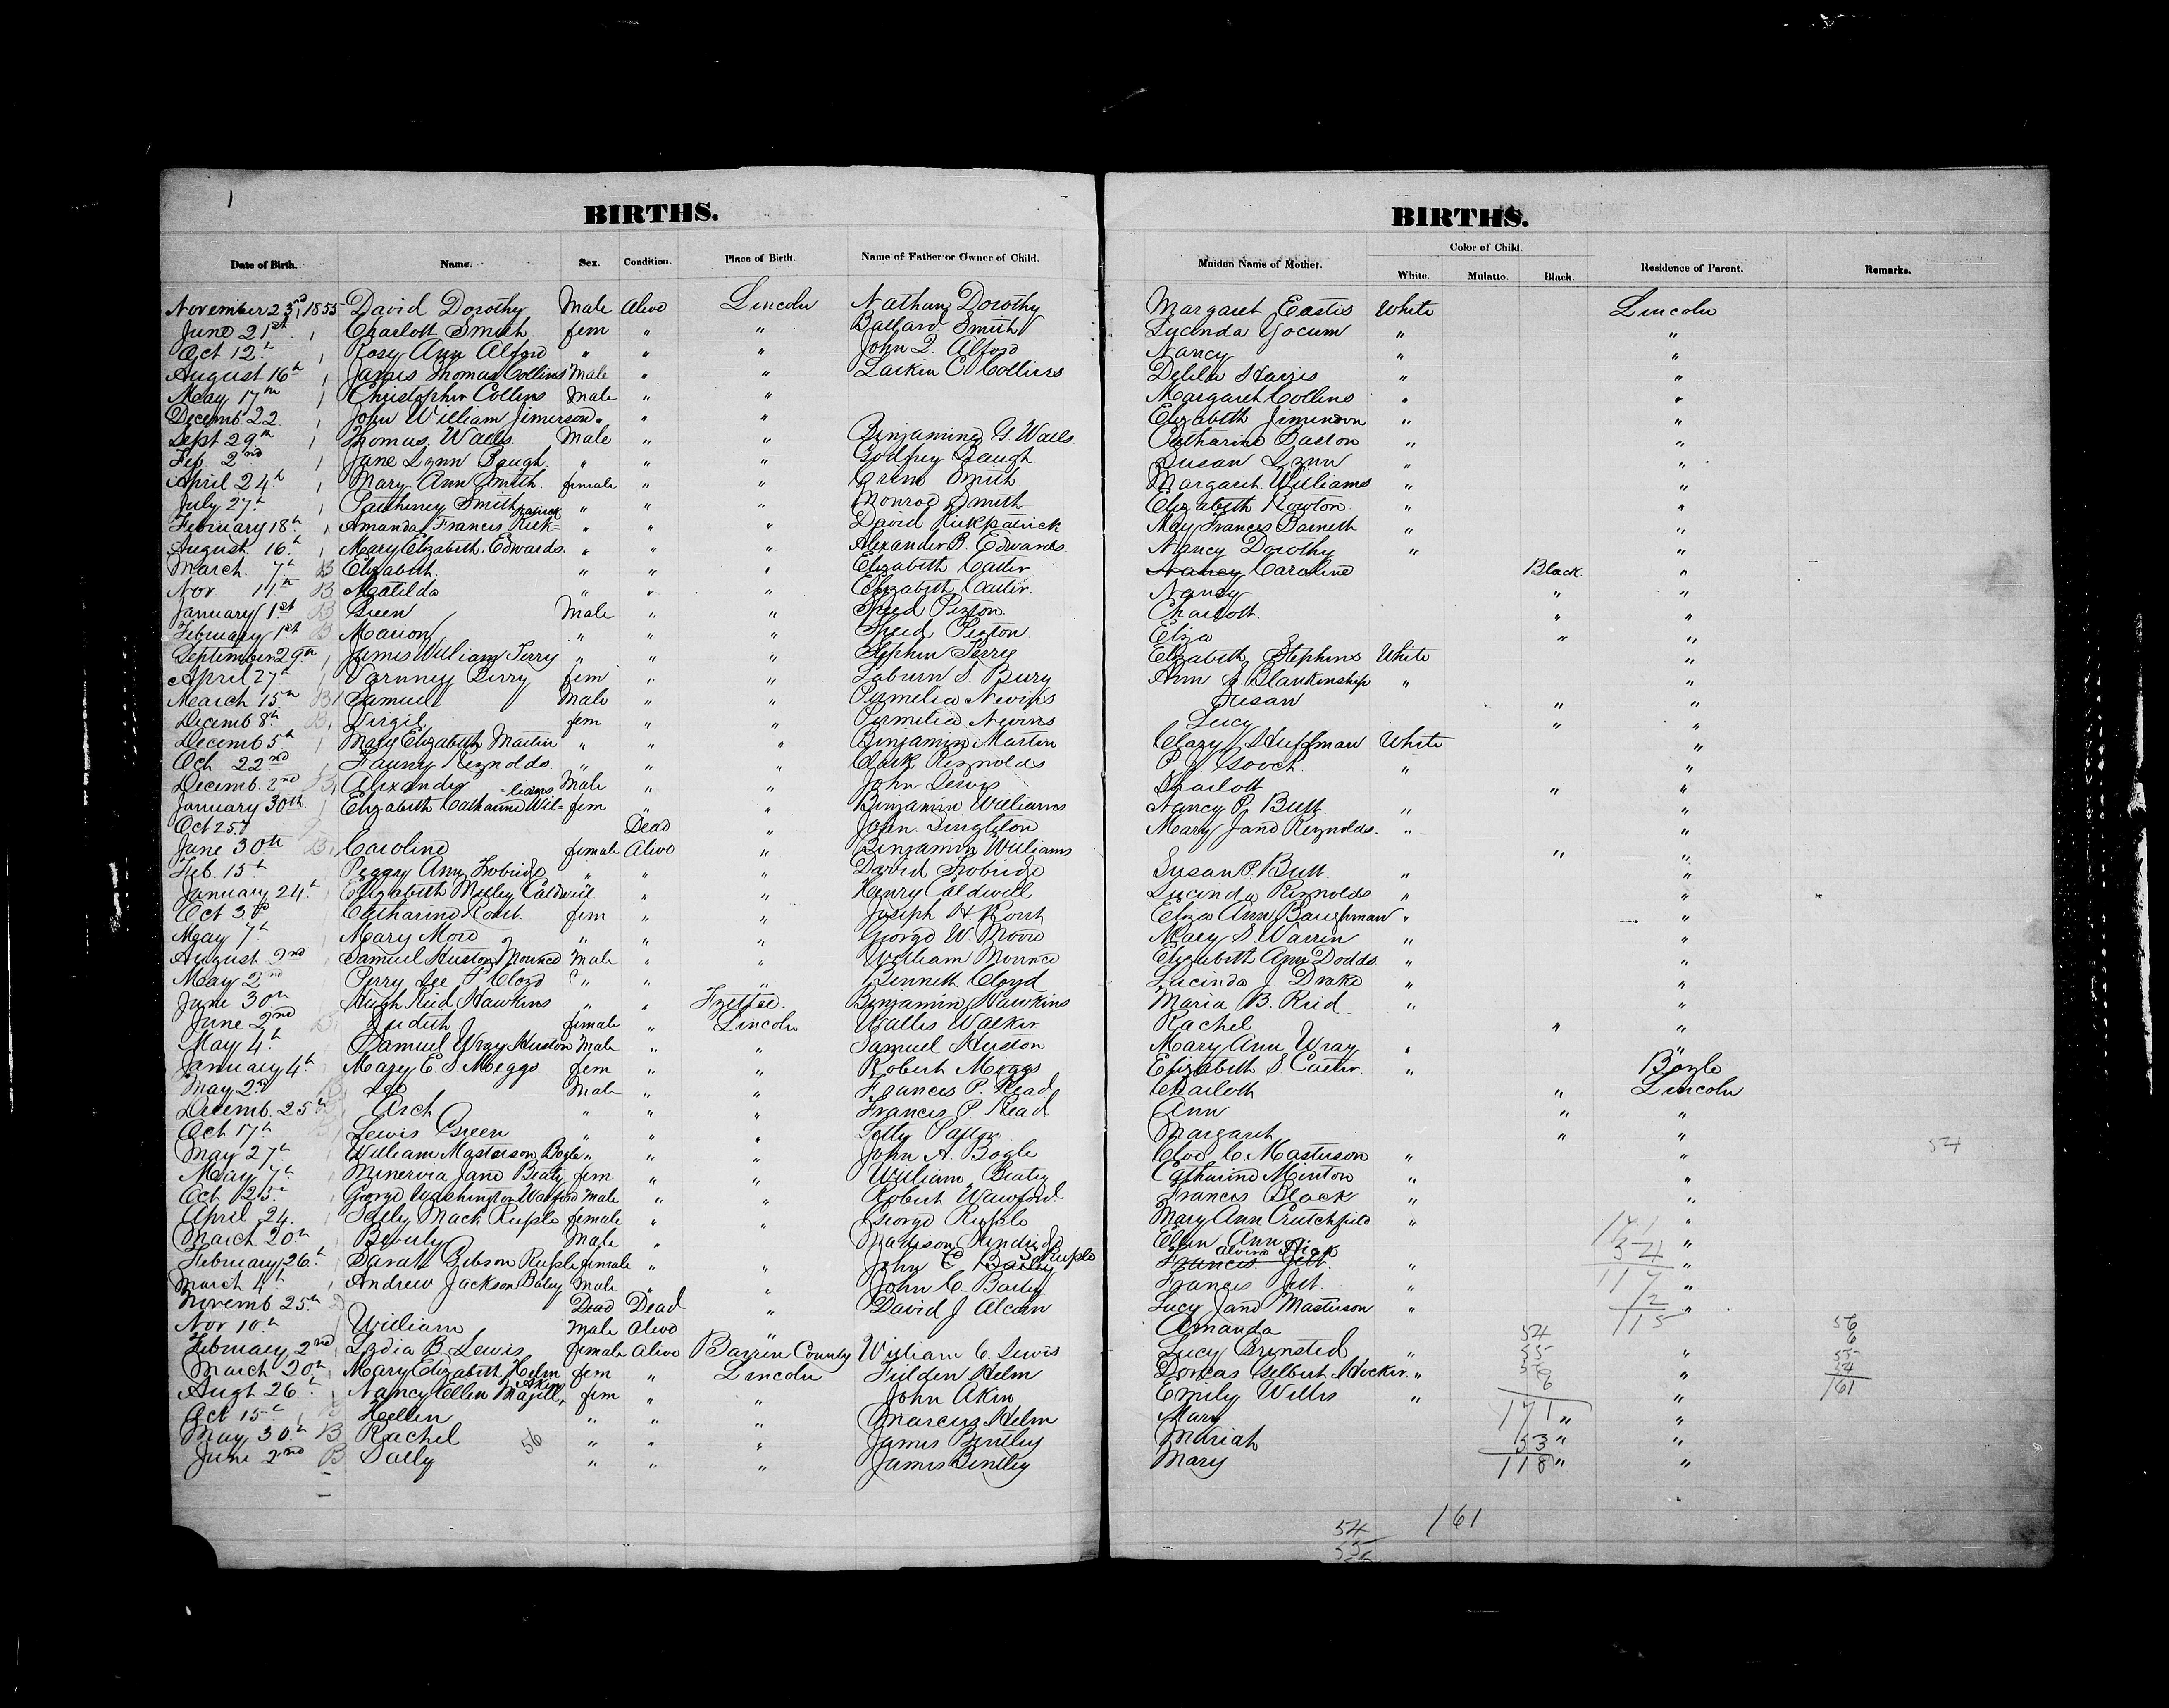 1
BIRTHS. BIRTHS.
Date of Birth. Name. Sex. Condition. Place of Birth. Name of Father or Owner of Child. Maiden Name of Mother. Color of Child. White. Mulatto. Black. Residence of Parent. Remarks.
November 23rd, 1855 David Dorothy Male Alive Lincoln Nathan Dorothy Margaret Eastis White Lincoln
June 21st , Charlott Smith fem " " Ballard Smith Lucinda Yocum " "
Oct 12th , Rosy Ann Alford " " " John Q. Alford Nancy " "
August 16th , James Thomas Collins Male " " Larkin C Collins Delila Harris " "
May 17th , Christopher Collins Male " " Margaret Collins " "
Decemb. 22 , John William Jimerson " " " Elizabeth Jimerson " "
Sept 29th , Thomas. Walls Male " " Benjamine G. Walls Catharine Baston " "
Feb. 2nd , Jane Lynn Baugh " " " Godfrey Baugh Susan Lynn " "
April 24th , Mary Ann Smith. female " " Green Smith Margaret. Williams " "
July 27th , Smith " " " Monroe Smith Elizabeth Rowton " "
February 18th , Amanda Francis Kirk= patrick " " " David Kirkpatrick May Francis Barnett " "
August 16th , Mary Elizabeth. Edwards. " " " Alexander B. Edwards Nancy Dorothy " "
March. 7th B Elizabeth. " " " Elizabeth Carter Nancy Caroline Black "
Nov 11th B Matilda " " " Elizabeth Carter. Nancy " "
January 1st B Green Male " " Speed Pexton Charlott. " "
February 1st B Marion " " " Speed Pexton Eliza " "
September 29th , James William Perry " " " Stephen Perry Elizabeth Stephens White "
April 27th , Berry fem " " Laburn S. Bury Ann S. Blankinship " "
March 15th B Samuel Male " " Permelia Nevins Susan " "
Decemb 8th B. Virgil fem " " Permelia Nevins Lucy " "
Decemb 5th , Mary Elizabeth Martin " " " Benjamin Martin Clazy Huffman White "
Oct 22nd , Fauny Reynolds " " " Clark Reynolds P. J. Gooch " "
Decemb. 2nd B, Alexander Male " " John Lewis Charlott " "
January 30th. Elizabeth Catharine Wil= liams fem " " Benjamin Williams Nancy P. Butt " "
Oct 25th Dead " John. Singleton Mary Jane Reynolds. " "
June 30th B, Caroline female Alive " Benjamin Williams " "
Feb. 15th Peggy Ann Lobride " " " David Lobride Susan P. Butt " "
January 24th Elizabeth Milley Caldwell " " " Henry Caldwell Lucinda Reynolds " "
Oct 3d Catharine Rout. fem " " Joseph H. Rout Eliza Ann Baughman " "
May 7th Mary More " " " George W. Moore Mary S Warren " "
August 2nd Samuel Huston Mounce Male " " William Mounce Elizabeth Ann Dodds " "
May 2nd Perry Lee P Cloyd " " " Bennett Cloyd Lucinda J. Drake " "
June 30th Hugh Reid Hawkins " " Fyette. Benjamin Hawkins Maria B. Reid " "
June 2nd B, Judith female " Lincoln Wallis Walker Rachel " "
May 4th Samuel Wray Huston Male " " Samuel Huston Mary Ann Wray " "
January 4th Mary E. S Meggs fem " " Robert Meggs Elizabeth S Carter. " Boyle
May 23d Lee Male " " Frances P. Read Charlott " Lincoln
Decemb. 25th Arch " " " Francis P Read Ann " "
Oct 17th Lewis Green " " " Letty Paxton Margaret " "
May 27th William Masterson Bogle " " " John A. Bogle C. Masterson " " 54
May 7th Minervia Jane Beaty fem " " William Beaty Catharine Minton " "
Oct 25th George Washington Warford Male " " Robert Warford. Francis Black " "
April 24. Sally Mack Ruple female " " George Ruple Mary Ann Crutchfield " "
March 20th Beverly Male " Madison Ellen Ann "
February 26th Sarah Gibson Ruple female " " John C Bailey Ruple Francis Jett. " "
March 4th Andrew Jackson Bailey Male " " John C. Bailey Francis Jett. " "
Novemb. 25th Dead Dead " David J Alcorn Lucy Jane Masterson " "
Nov 10th William Male Alive " Amanda
February 2nd Lydia B Lewis female Alive Barren County William C. Lewis Lucy Brinsted " "
March 20th Mary Elizabeth Helm fem " Lincoln Fielden Helm Dorcas Gelbert Hocker. " "
Augt 26th Nancy Ellen Magill, Akin fem " " John Akin Emily Willis " "
Oct 15th , Hellen " " " Marcus Helm Mary " "
May 30th B Rachel 56 " " " James Bentley Mariah " "
June 2nd B Sally " " " James Bentley Mary " "
171
54
117
2
115
171
53
118
56
6
55
54
161
54
55
161